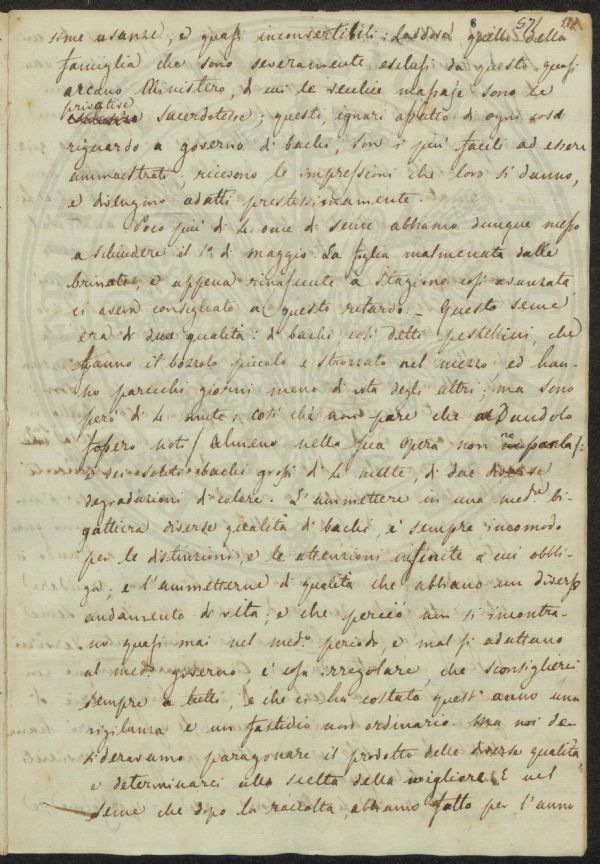 8 571
sime usanze, e quasi inconvertibili: Laddove quelli della
famiglia che sono severamente esclusi da questo quasi
arcano Ministero, di cui le vecchie massaje sono le
privative
Sacerdotesse; questi, ignari affatto di ogni cosa
riguardo a governo di bachi, son i più facili ad essere
ammaestrati, ricevono le impressioni che loro si danno,
e divengono adatti prestissimamente.
Poco più di 4 once di seme abbiamo dunque messo
a schiudere il 1o di maggio. La foglia malmenata dalle
brinate, e appena rinascente a stagione così avanzata
ci aveva consigliato a questo ritardo. – Questo seme
era di due qualità: di bachi così detti pestellini, che
fanno il bozzolo piccolo e strozzato nel mezzo, ed han-
no parecchi giorni meno di vita degli altri; ma sono
però di 4 mute, così che non pare che al Dandolo
fossero noti / almeno nella sua opera non ne parla /:
e dei soliti bachi grossi di 4 mute, di due diverse
degradazioni di colore. L'ammettere in una meda bi-
gattiera diverse qualità di bachi, è sempre incomodo
per le distinzioni, e le attenzioni infinite a cui obbli-
ga; e l'ammetterne di qualità che abbiano un diverso
andamento di vita, e che perciò non si incontra-
no quasi mai nel medo periodo, e mal si adattano
al medo governo, è cosa irregolare, che sconsiglierei
sempre a tutti, e che ci ha costato quest'anno una
vigilanza e un fastidio non ordinario. Ma noi de-
sideravamo paragonare il prodotto delle diverse qualità,
e determinarci alla scelta della migliore. E nel
seme che dopo la raccolta, abbiamo fatto per l'anno